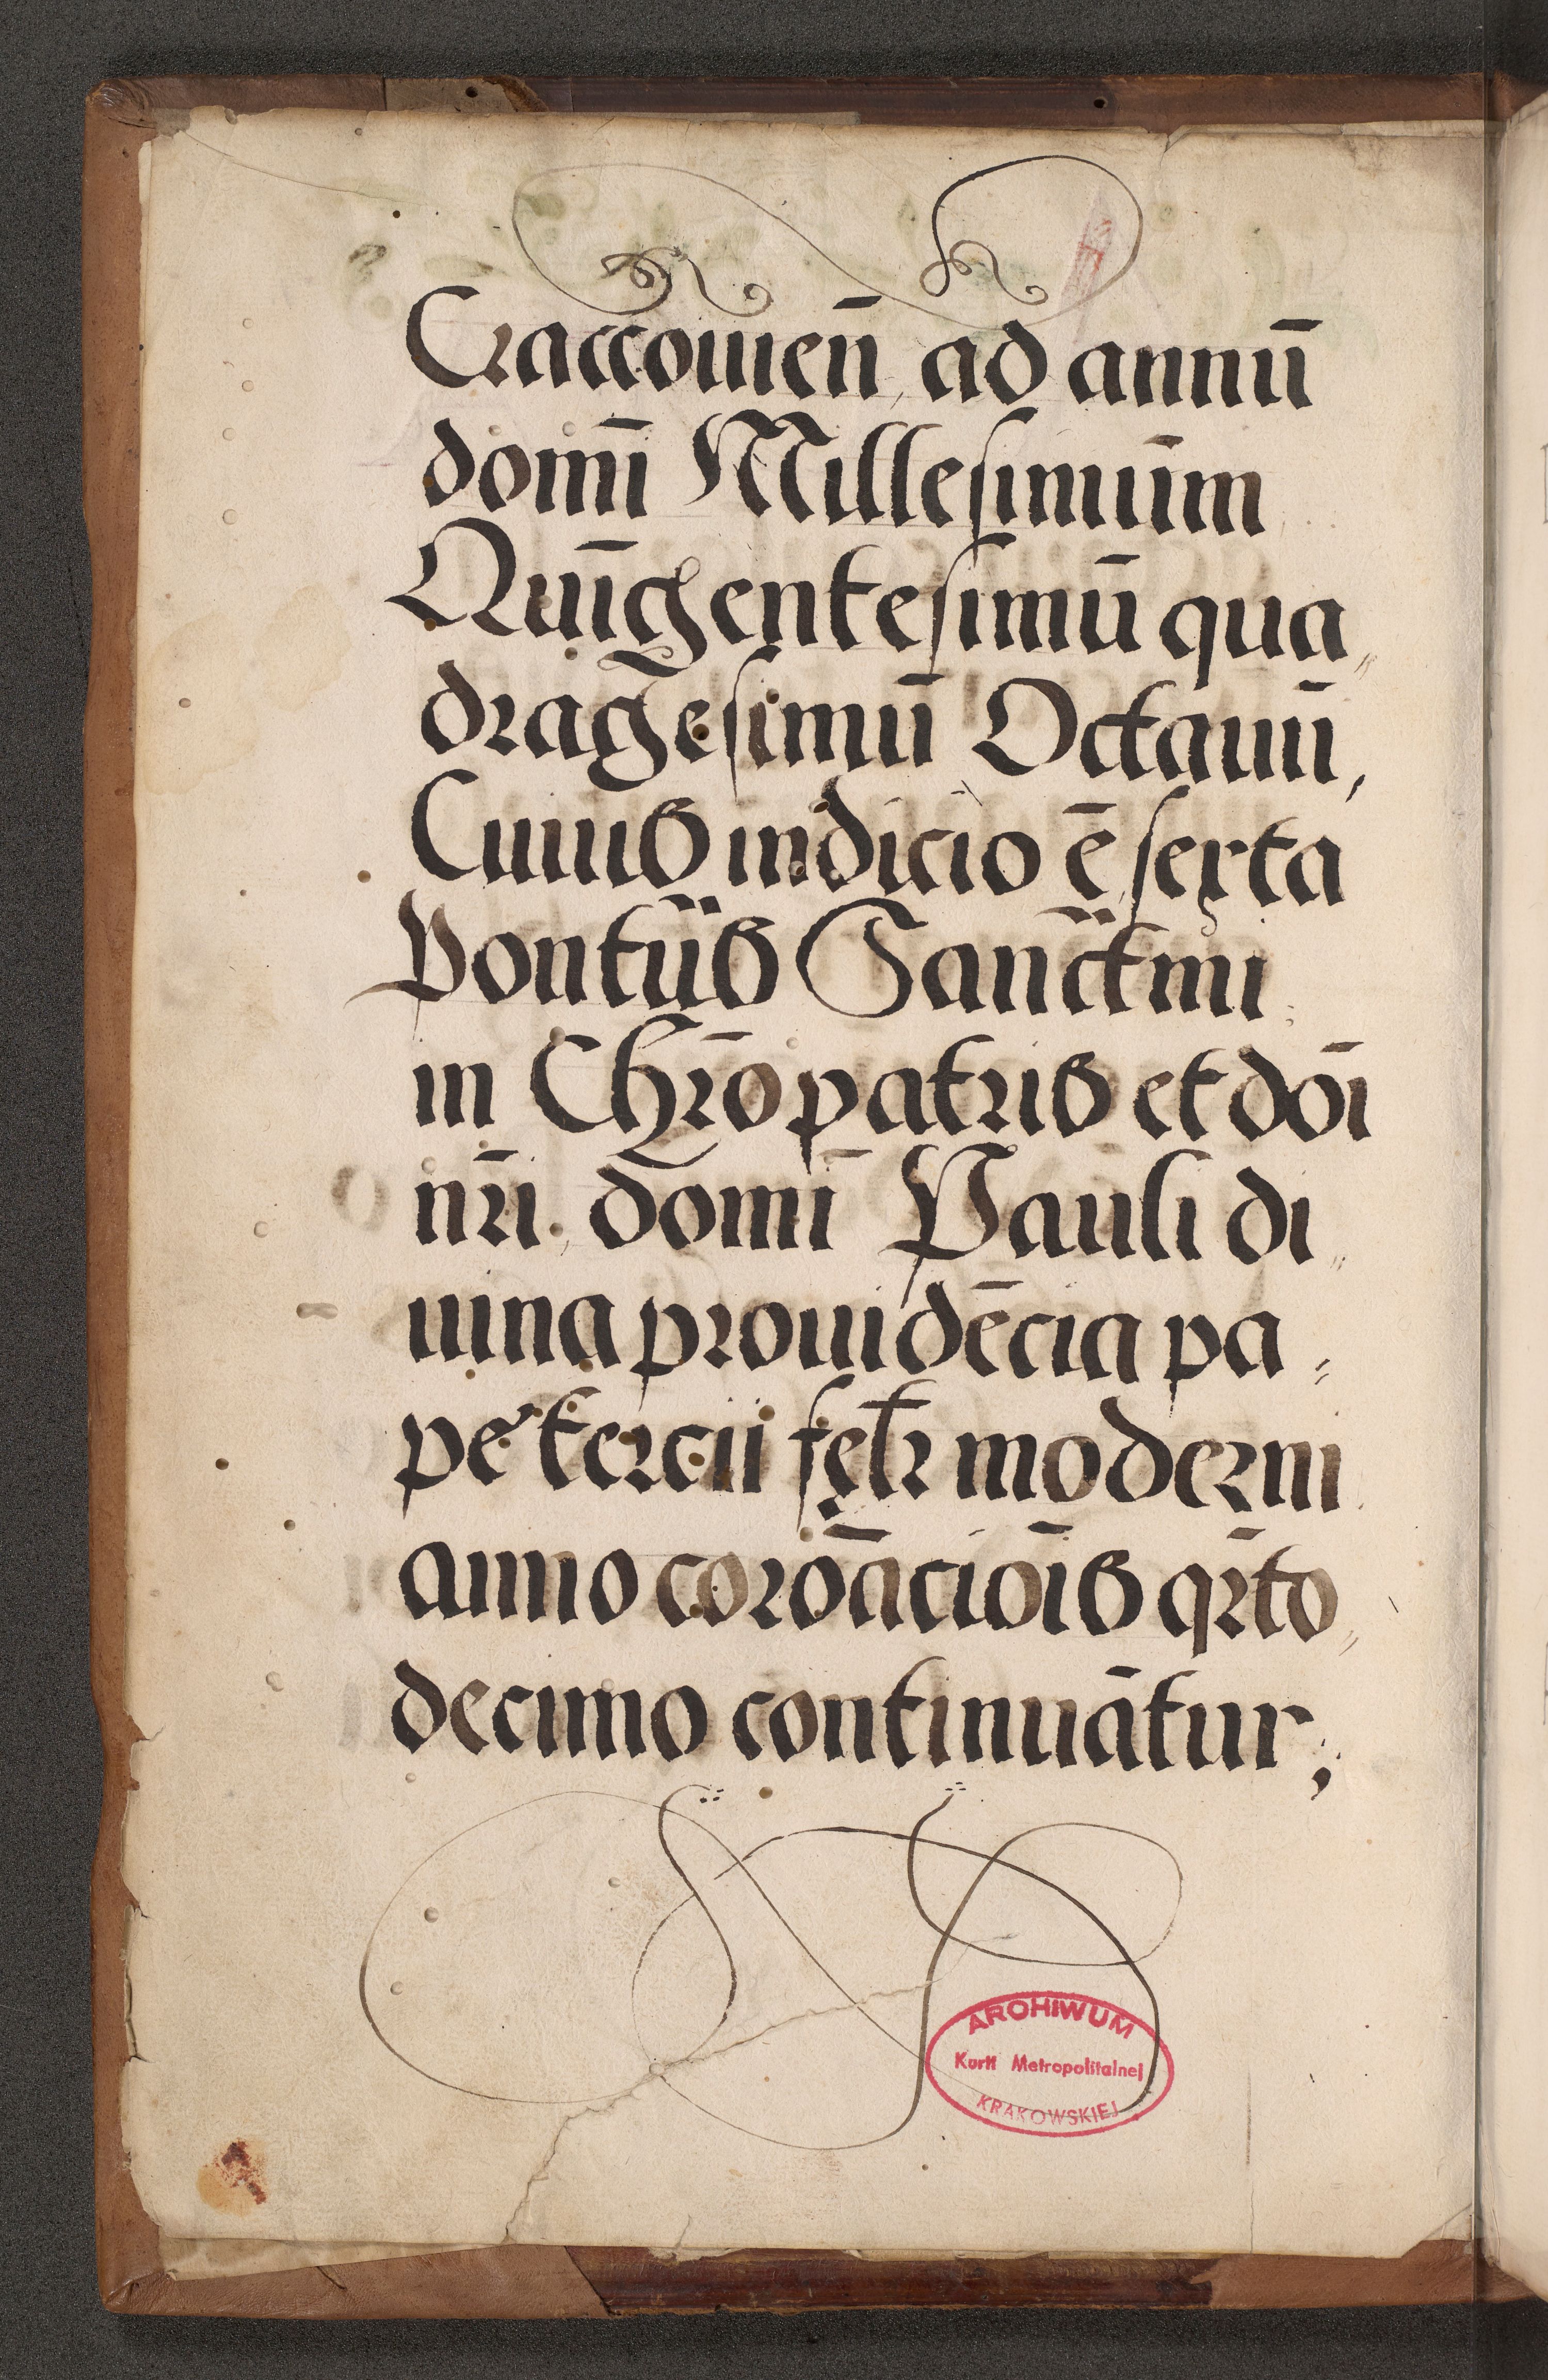 Craccouień ad annū
domī Millesimūm
Quīgentesimū qua„
dragesimū Octauū,
Cuius indicio ē sexta
Pontüs Sanctmi
in Chrō patris et doī
nrī domī Pauli di„
uina prouidēcia pa„
pe tercii felr moderni
anno corōāciōīs qrto„
decimo continuātur;
ARCHIWUM
Kurii Metropolitalnej
KRAKOWSKIEJ